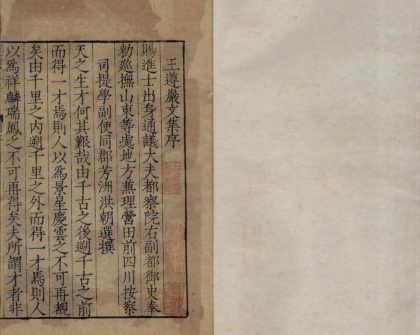 王遵巖文集序
賜進士出身通議大夫都察院右副都御史奉
勅巡撫山東等處地方兼理營田前四川按察
司提學副使同郡芳洲洪朝選撰
天之生才何其艱哉由千古之後遡千古之前
而得一才焉則人以爲景星慶雲之不可再覩
矣由千里之内遡千里之外而得一才焉則人
以爲祥麟瑞鳳之不可再得矣夫所謂才者非